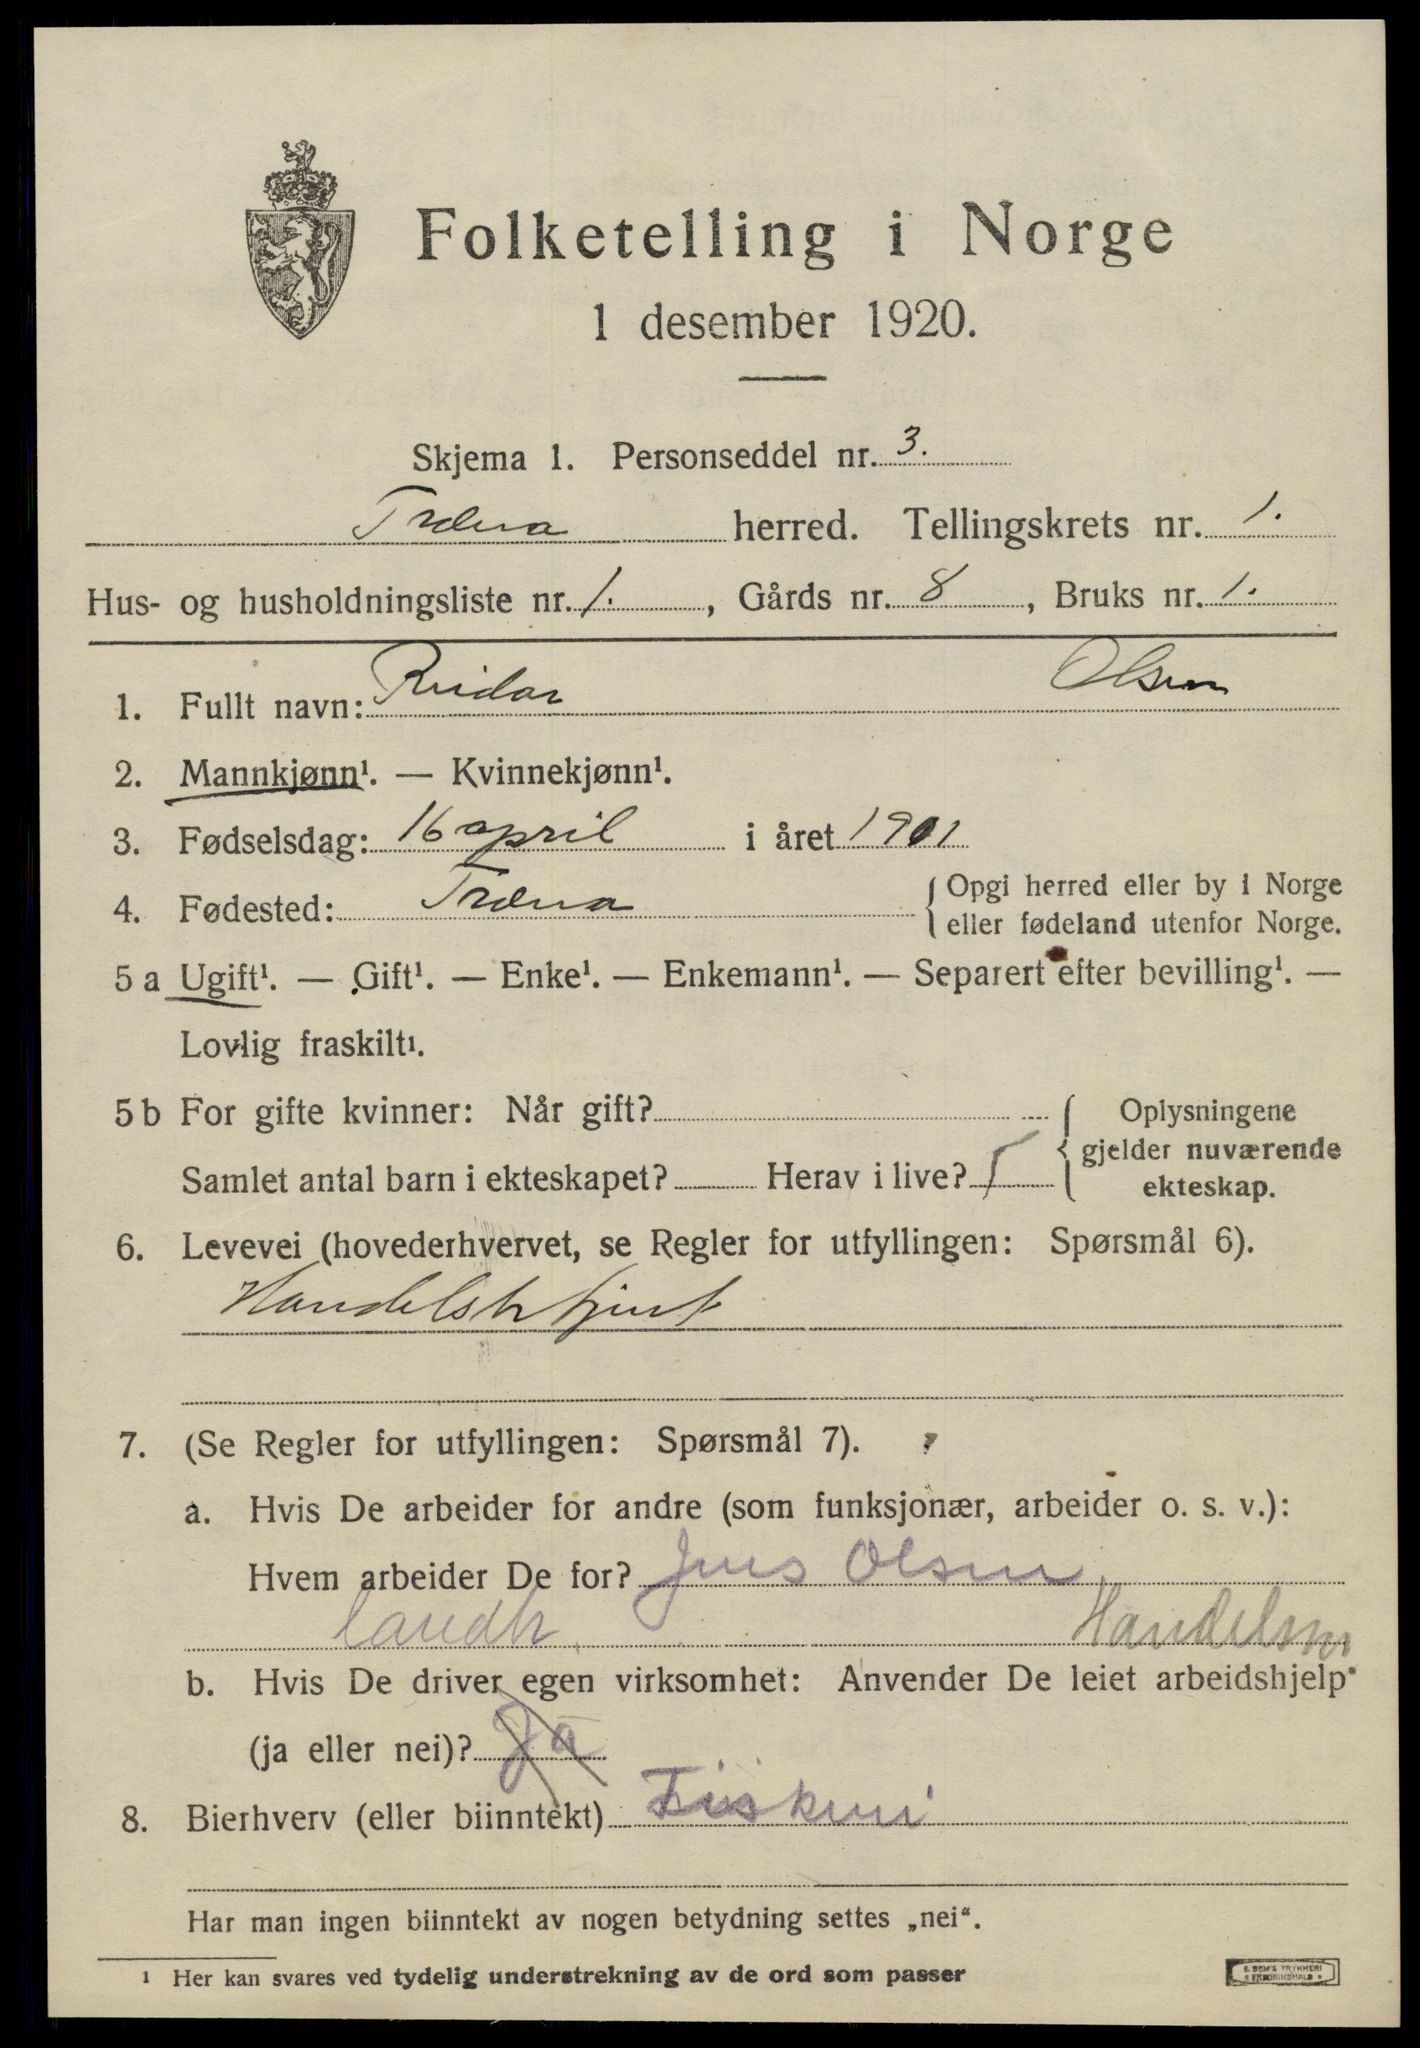 Folketelling i Norge
1 desember 1920.
Skjema 1. Personseddel nr. 3.
Træna herred. Tellingskrets nr. 1.
Hus- og husholdningsliste nr. 1. , Gårds nr. 8 , Bruks nr. 1.
1. Fullt navn: Reidar Olsen
2. Mannkjønn¹. — Kvinnekjønn¹.
3. Fødselsdag: 16 april i året 1901
4. Fødested: Træna { Opgi herred eller by i Norge
eller fødeland utenfor Norge.
5 a Ugift¹. — Gift¹. — Enke¹. — Enkemann¹. — Separert efter bevilling¹. —
Lovlig fraskilt¹.
5 b For gifte kvinner: Når gift? { Oplysningene
gjelder nuværende
ekteskap.
Samlet antal barn i ekteskapet? Herav i live?
6. Levevei (hovederhvervet, se Regler for utfyllingen: Spørsmål 6).
Handelsbetjent
7. (Se Regler for utfyllingen: Spørsmål 7).
a. Hvis De arbeider for andre (som funksjonær, arbeider o. s. v.):
Hvem arbeider De for? Jens Olsen
landh. Handelsm
b. Hvis De driver egen virksomhet: Anvender De leiet arbeidshjelp
(ja eller nei)? Ja
8. Bierhverv (eller biinntekt) Fiskeri
Har man ingen biinntekt av nogen betydning settes „nei“.
¹ Her kan svares ved tydelig understrekning av de ord som passer
E. SEM'S TRYKKERI
* FREDRIKSHALD *